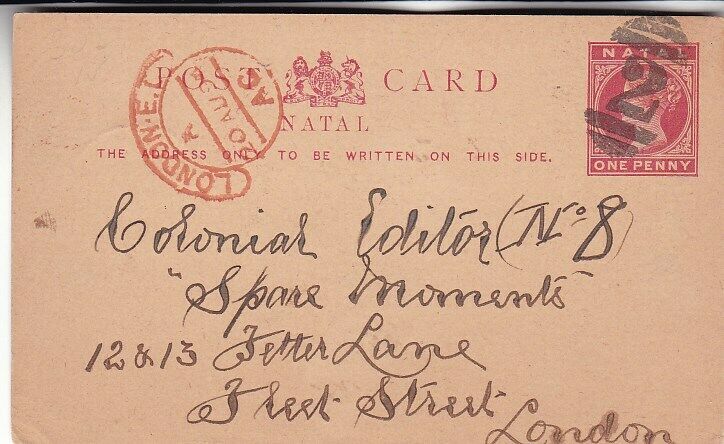 POST CARD
NATAL
THE ADDRESS ONLY TO BE WRITTEN ON THIS SIDE.
LONDON. E.C
A
20 AU 9
A
NATAL
ONE PENNY
2
Colonial Editor (No 8
"Spare Moments"
12 & 13 Fetter Lane
Fleet Street
London